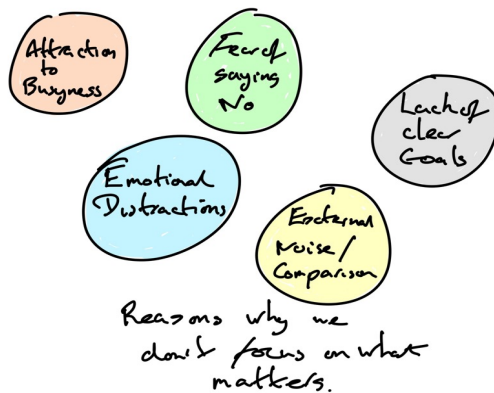 Attraction
to
Busyness
Fear of
saying
No
Lack of
clear
Goals
Emotional
Distractions
External
Noise /
Comparison
Reasons why we
don't focus on what
matters.